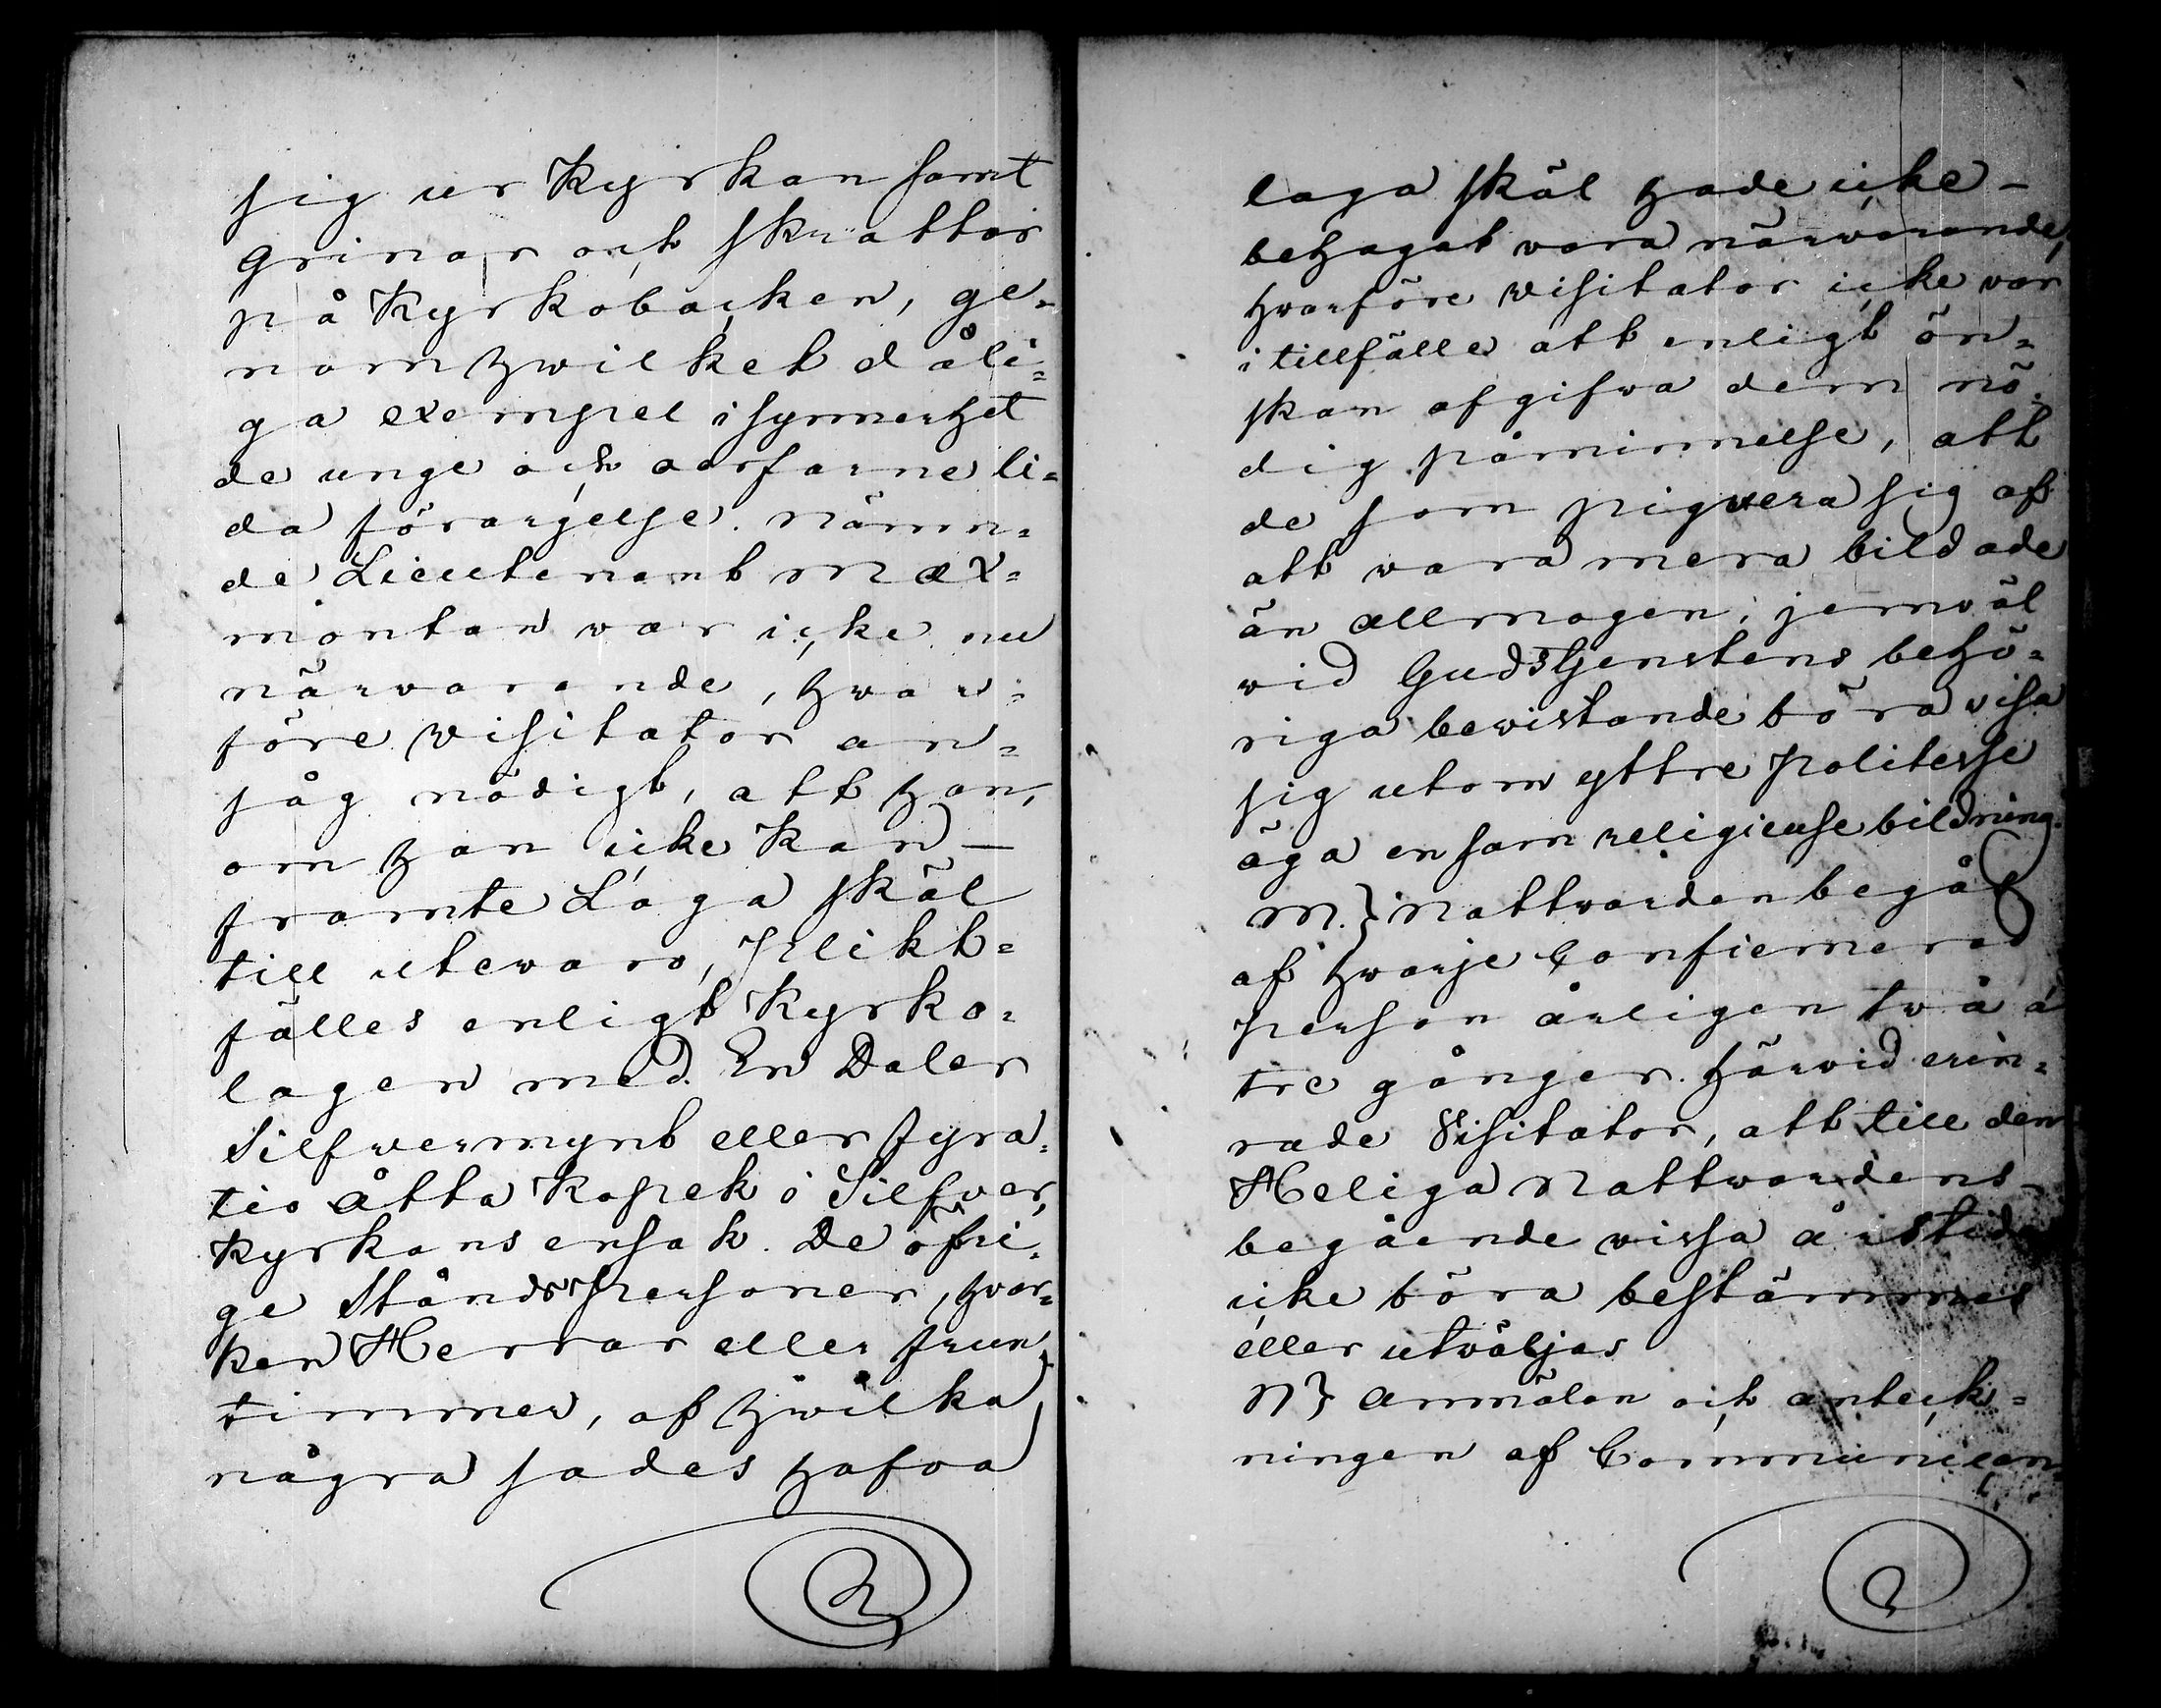 sig ur Kyrkan samt
grinar och skrattar
på Kyrkobacken, ge=
nom hwilket dåli=
ga exempel isynnerhet
de unge och oerfarne li=
da förargelse. Nämn=
de Lieutenant Mæx=
montan war icke nu
närwarande, hwar=
före Visitator an=
såg nödigt, att han,
om han icke kan –
framte Laga skäl
till utewaro, plikt=
fälles enligt Kyrko=
lagen med En Daler
Silfwermynt eller fyra=
tio åtta Kopek i Silfwer,
Kyrkans ensak. De öfri=
ge StåndsPersoner, hvar=
ken Herrar eller frun=
timmer, af hwilka
några sades hafva
laga skäl hade icke –
behagat vara närwarande,
hvarföre Visitator icke var
i tillfälle att enligt ön=
skan afgifwa dem nö=
dig påminnelse, att
de som piqvera sig af
att wara mera bildade
än allmogen, jemväl
wid Gudstjenstens behö=
riga bewistande böra visa
sig utom yttre politesse
äga en sann religieuse bildning.
M.} Nattwarden begås
af hwarje Confirmerad
person årligen två á
tre gånger. Härvid erin=
rade Visitator, att till den
Heliga Nattwardens –
begående wissa årstider
icke böra bestämmas
eller utväljas
N} Anmälan och anteck=
ningen af Communican=